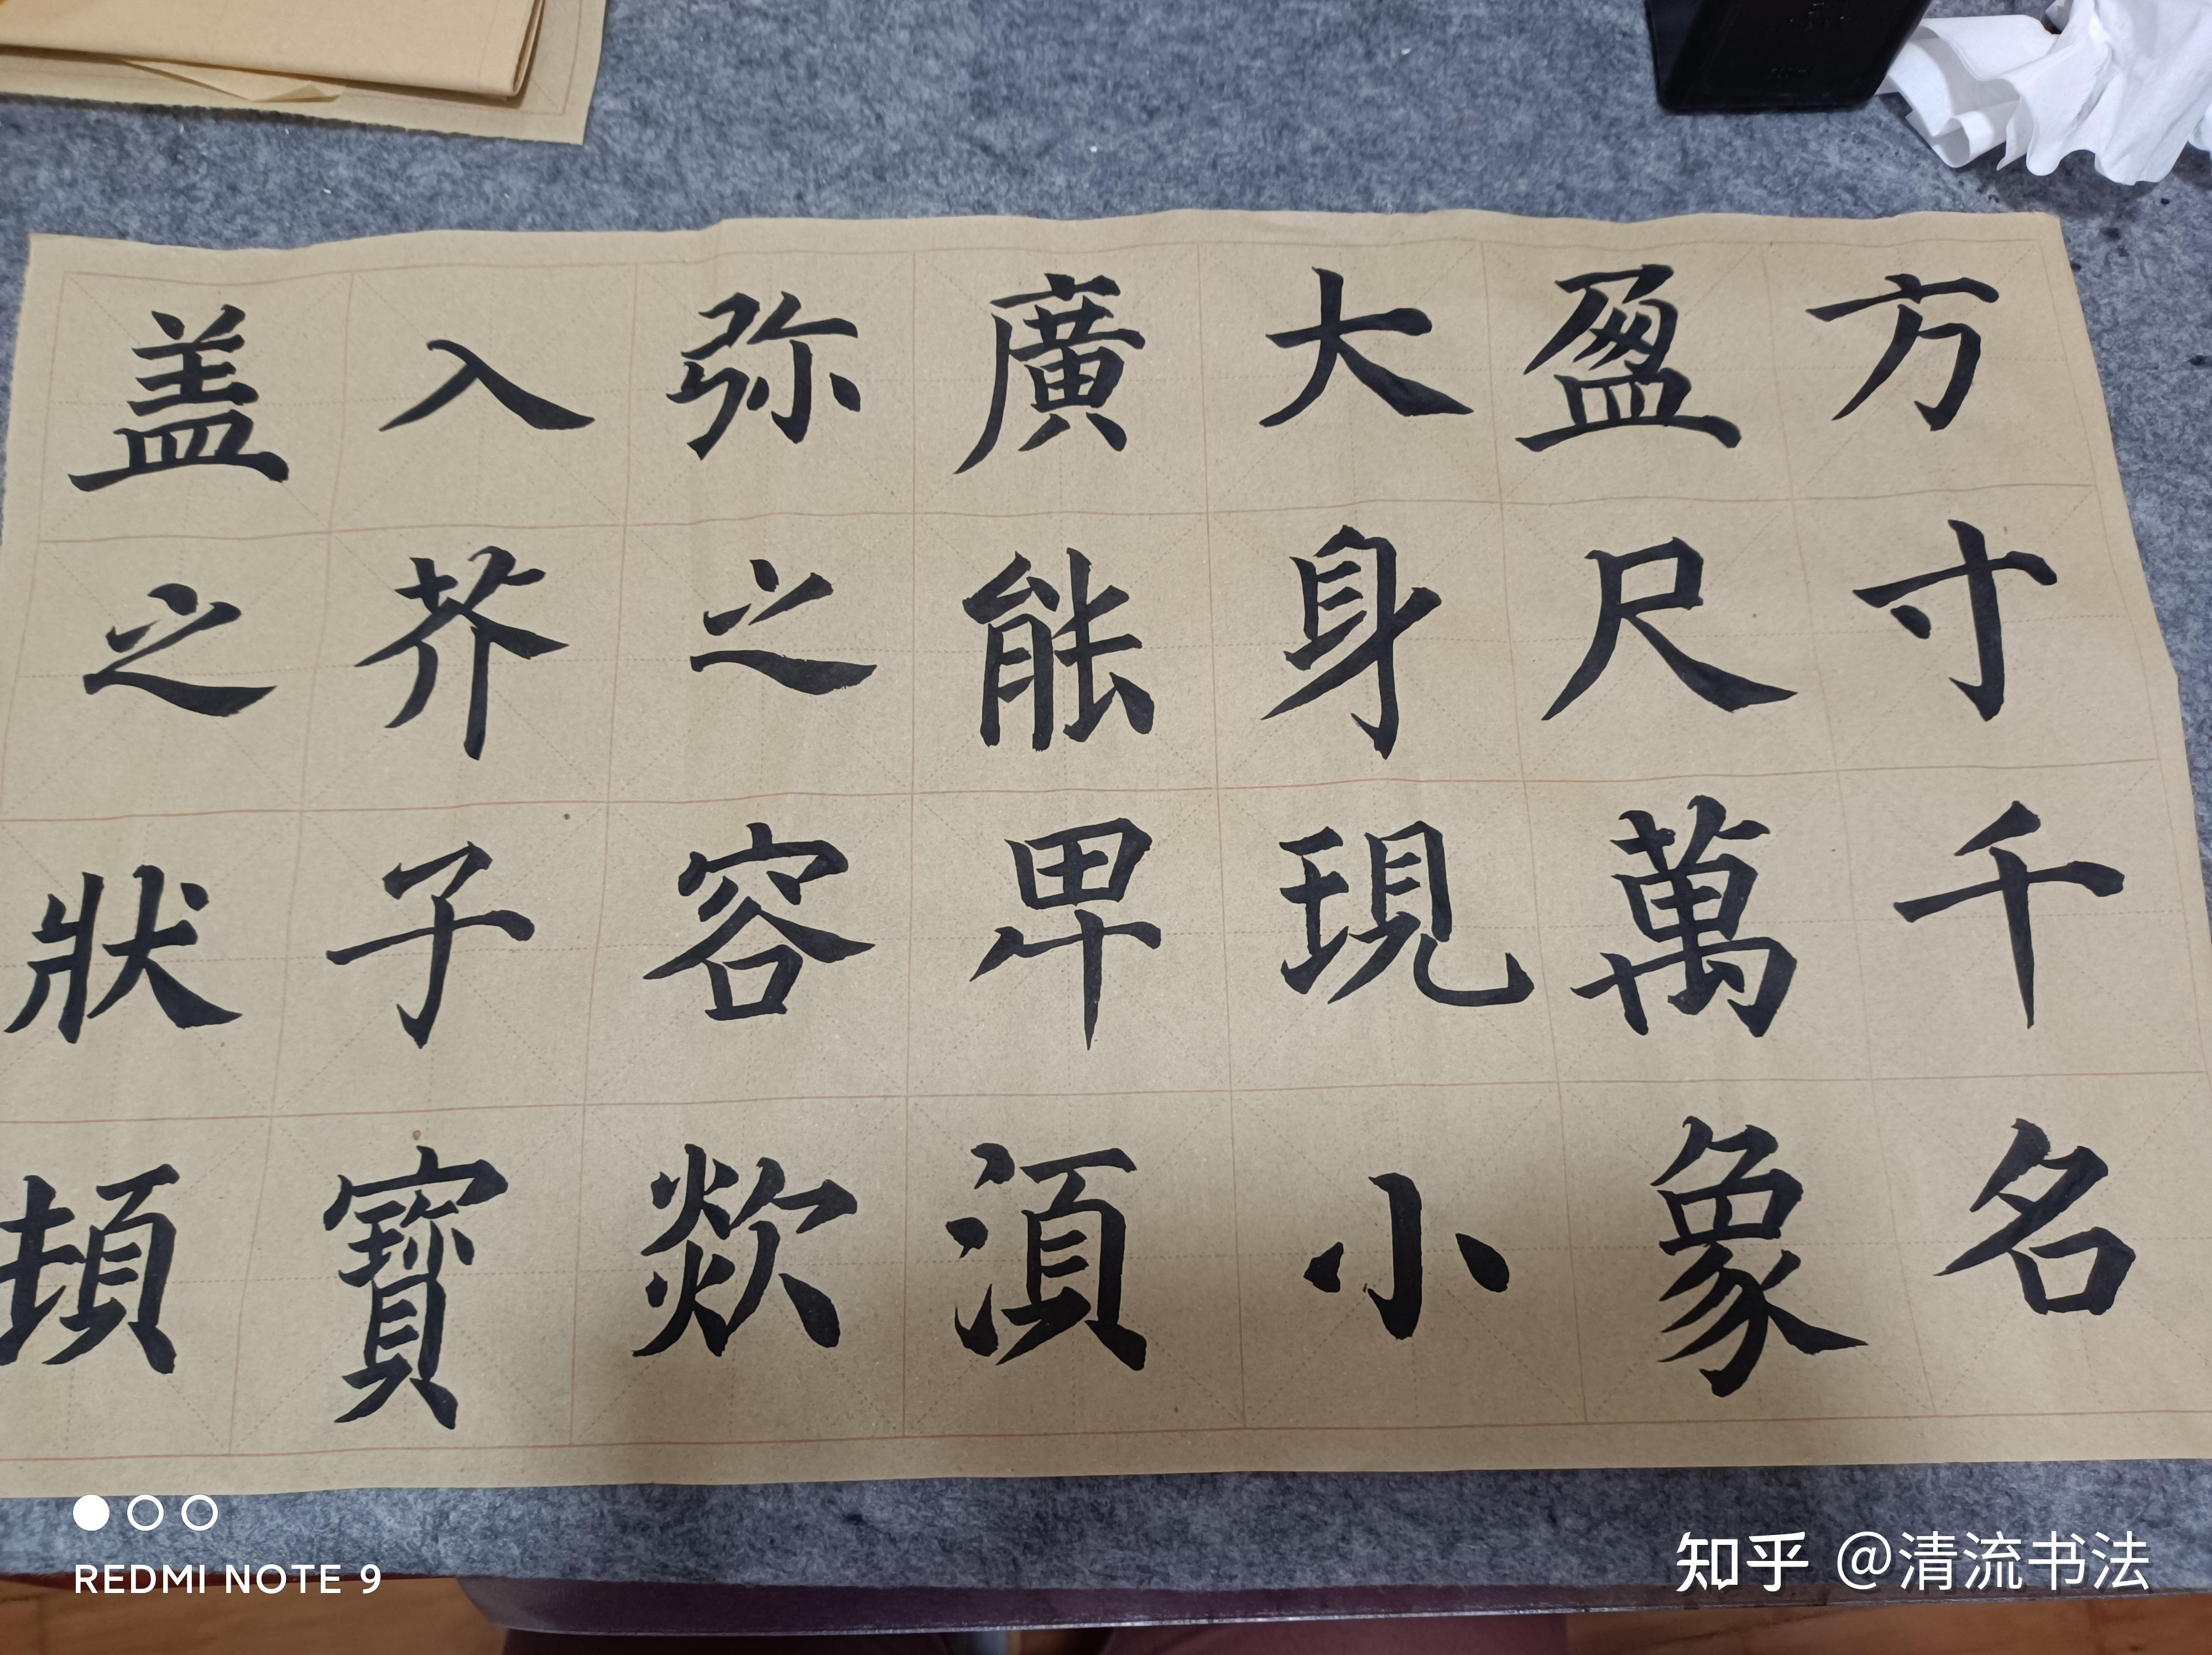 方寸千名
盈尺萬象
大身現小
廣能卑湏
弥之容欻
入芥子寶
盖之狀頓
REDMI NOTE 9
知乎 @清流书法